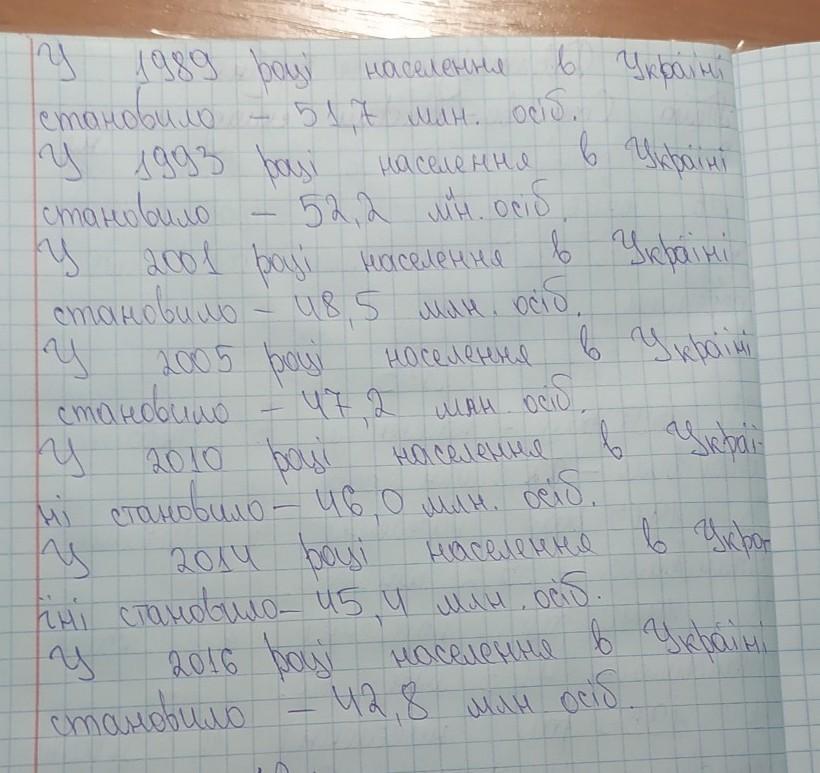 У 1989 році населення в Україні
становило – 51,7 млн. осіб.
У 1993 році населення в Україні
становило – 52,2 млн. осіб.
У 2001 році населення в Україні
становило – 48,5 млн. осіб.
У 2005 році населення в Україні
становило – 47,2 млн. осіб.
У 2010 році населення в Украї-
ні становило – 46,0 млн. осіб.
У 2014 році населення в Укра-
їні становило – 45,4 млн. осіб.
У 2016 році населення в Україні
становило – 42,8 млн осіб.